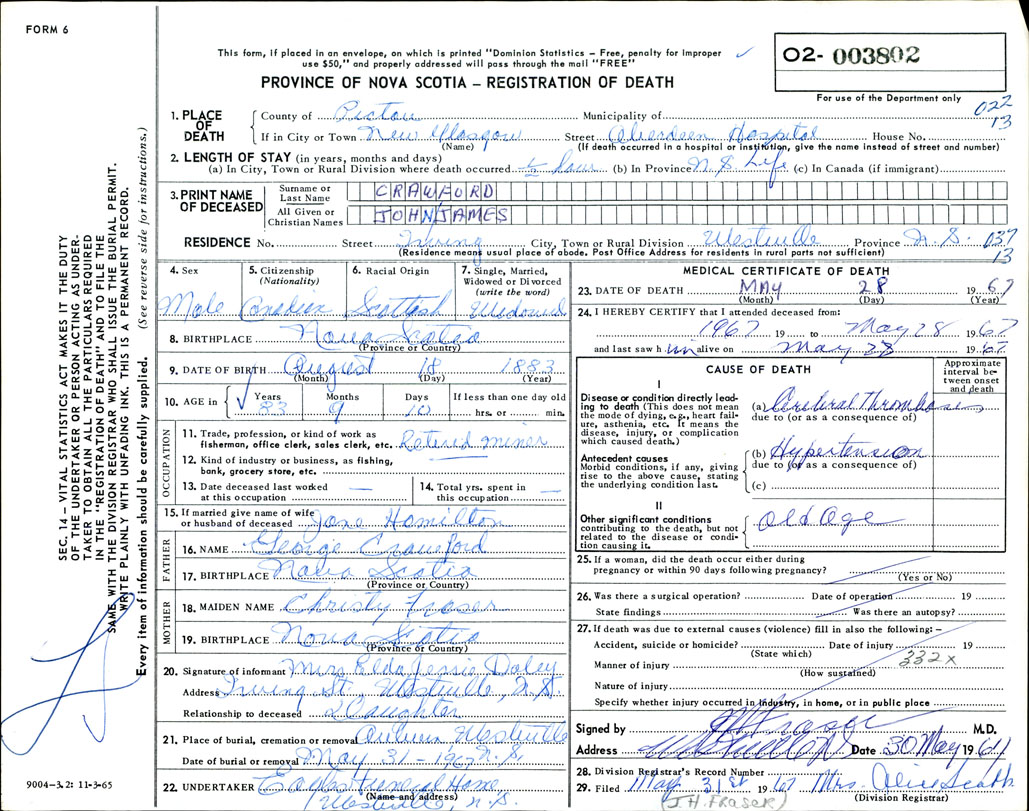 FORM 6
This form, if placed in an envelope, on which is printed "Dominion Statistics – Free, penalty for improper
use $50," and properly addressed will pass through the mail "FREE"
PROVINCE OF NOVA SCOTIA – REGISTRATION OF DEATH
O2- 003802
For use of the Department only
022
13
1. PLACE OF DEATH
County of Pictou Municipality of
If in City or Town New Glasgow Street Aberdeen Hospital House No.
(Name) (If death occurred in a hospital or institution, give the name instead of street and number)
2. LENGTH OF STAY (in years, months and days)
(a) In City, Town or Rural Division where death occurred ½ hour (b) In Province N.S. Life (c) In Canada (if immigrant)
3. PRINT NAME OF DECEASED
Surname or Last Name CRAWFORD
All Given or Christian Names JOHN JAMES
RESIDENCE No. Street Irving City, Town or Rural Division Westville Province N.S. 037
13
(Residence means usual place of abode. Post Office Address for residents in rural parts not sufficient)
4. Sex Male
5. Citizenship (Nationality) Canadian
6. Racial Origin Scottish
7. Single, Married, Widowed or Divorced (write the word) Widowed
8. BIRTHPLACE Nova Scotia
(Province or Country)
9. DATE OF BIRTH August 18 1883
(Month) (Day) (Year)
10. AGE in Years Months Days If less than one day old
83 9 10 hrs. or min.
OCCUPATION
11. Trade, profession, or kind of work as
fisherman, office clerk, sales clerk, etc. Retired miner
12. Kind of industry or business, as fishing,
bank, grocery store, etc. —
13. Date deceased last worked
at this occupation —
14. Total yrs. spent in
this occupation —
15. If married give name of wife
or husband of deceased Jane Hamilton
FATHER
16. NAME George Crawford
17. BIRTHPLACE Nova Scotia
(Province or Country)
MOTHER
18. MAIDEN NAME Christy Fraser
19. BIRTHPLACE Nova Scotia
(Province or Country)
20. Signature of informant Mrs. Jessie Daley
Address Irving St., Westville, N.S.
Relationship to deceased Daughter
21. Place of burial, cremation or removal Auburn Westville
N.S.
Date of burial or removal May 31 - 1967
22. UNDERTAKER Funeral Home
(Name and address)
Westville, N.S.
MEDICAL CERTIFICATE OF DEATH
23. DATE OF DEATH MAY 28 19 67
(Month) (Day) (Year)
24. I HEREBY CERTIFY that I attended deceased from:
1967 19 to May 28 19 67
and last saw h im alive on May 28 19 67
CAUSE OF DEATH
Approximate interval between onset and death
I
Disease or condition directly leading to death (This does not
mean the mode of dying, e.g., heart failure, asthenia, etc. It means the
disease, injury, or complication
which caused death.)
(a) Cerebral Thrombosis
due to (or as a consequence of)
Antecedent causes
Morbid conditions, if any, giving
rise to the above cause, stating
the underlying condition last.
(b) Hypertension
due to (or as a consequence of)
(c)
II
Other significant conditions
contributing to the death, but not
related to the disease or condition causing it.
Old Age
25. If a woman, did the death occur either during
pregnancy or within 90 days following pregnancy?
(Yes or No)
26. Was there a surgical operation? Date of operation 19
State findings Was there an autopsy?
27. If death was due to external causes (violence) fill in also the following: –
Accident, suicide or homicide? Date of injury 19
(State which)
332X
Manner of injury
(How sustained)
Nature of injury
Specify whether injury occurred in industry, in home, or in public place
Signed by JH Fraser M.D.
Address Westville Date 30 May 19 67
28. Division Registrar's Record Number
29. Filed May 31st 19 67 Mrs. Alice Scott
(Division Registrar)
(J.H. FRASER)
SEC. 14 – VITAL STATISTICS ACT MAKES IT THE DUTY
OF THE UNDERTAKER OR PERSON ACTING AS UNDERTAKER TO OBTAIN ALL THE PARTICULARS REQUIRED
IN THE "REGISTRATION OF DEATH" AND TO FILE THE
SAME WITH THE DIVISION REGISTRAR WHO SHALL ISSUE THE BURIAL PERMIT.
WRITE PLAINLY WITH UNFADING INK. THIS IS A PERMANENT RECORD.
Every item of information should be carefully supplied. (See reverse side for instructions.)
9004-3.2: 11-3-65